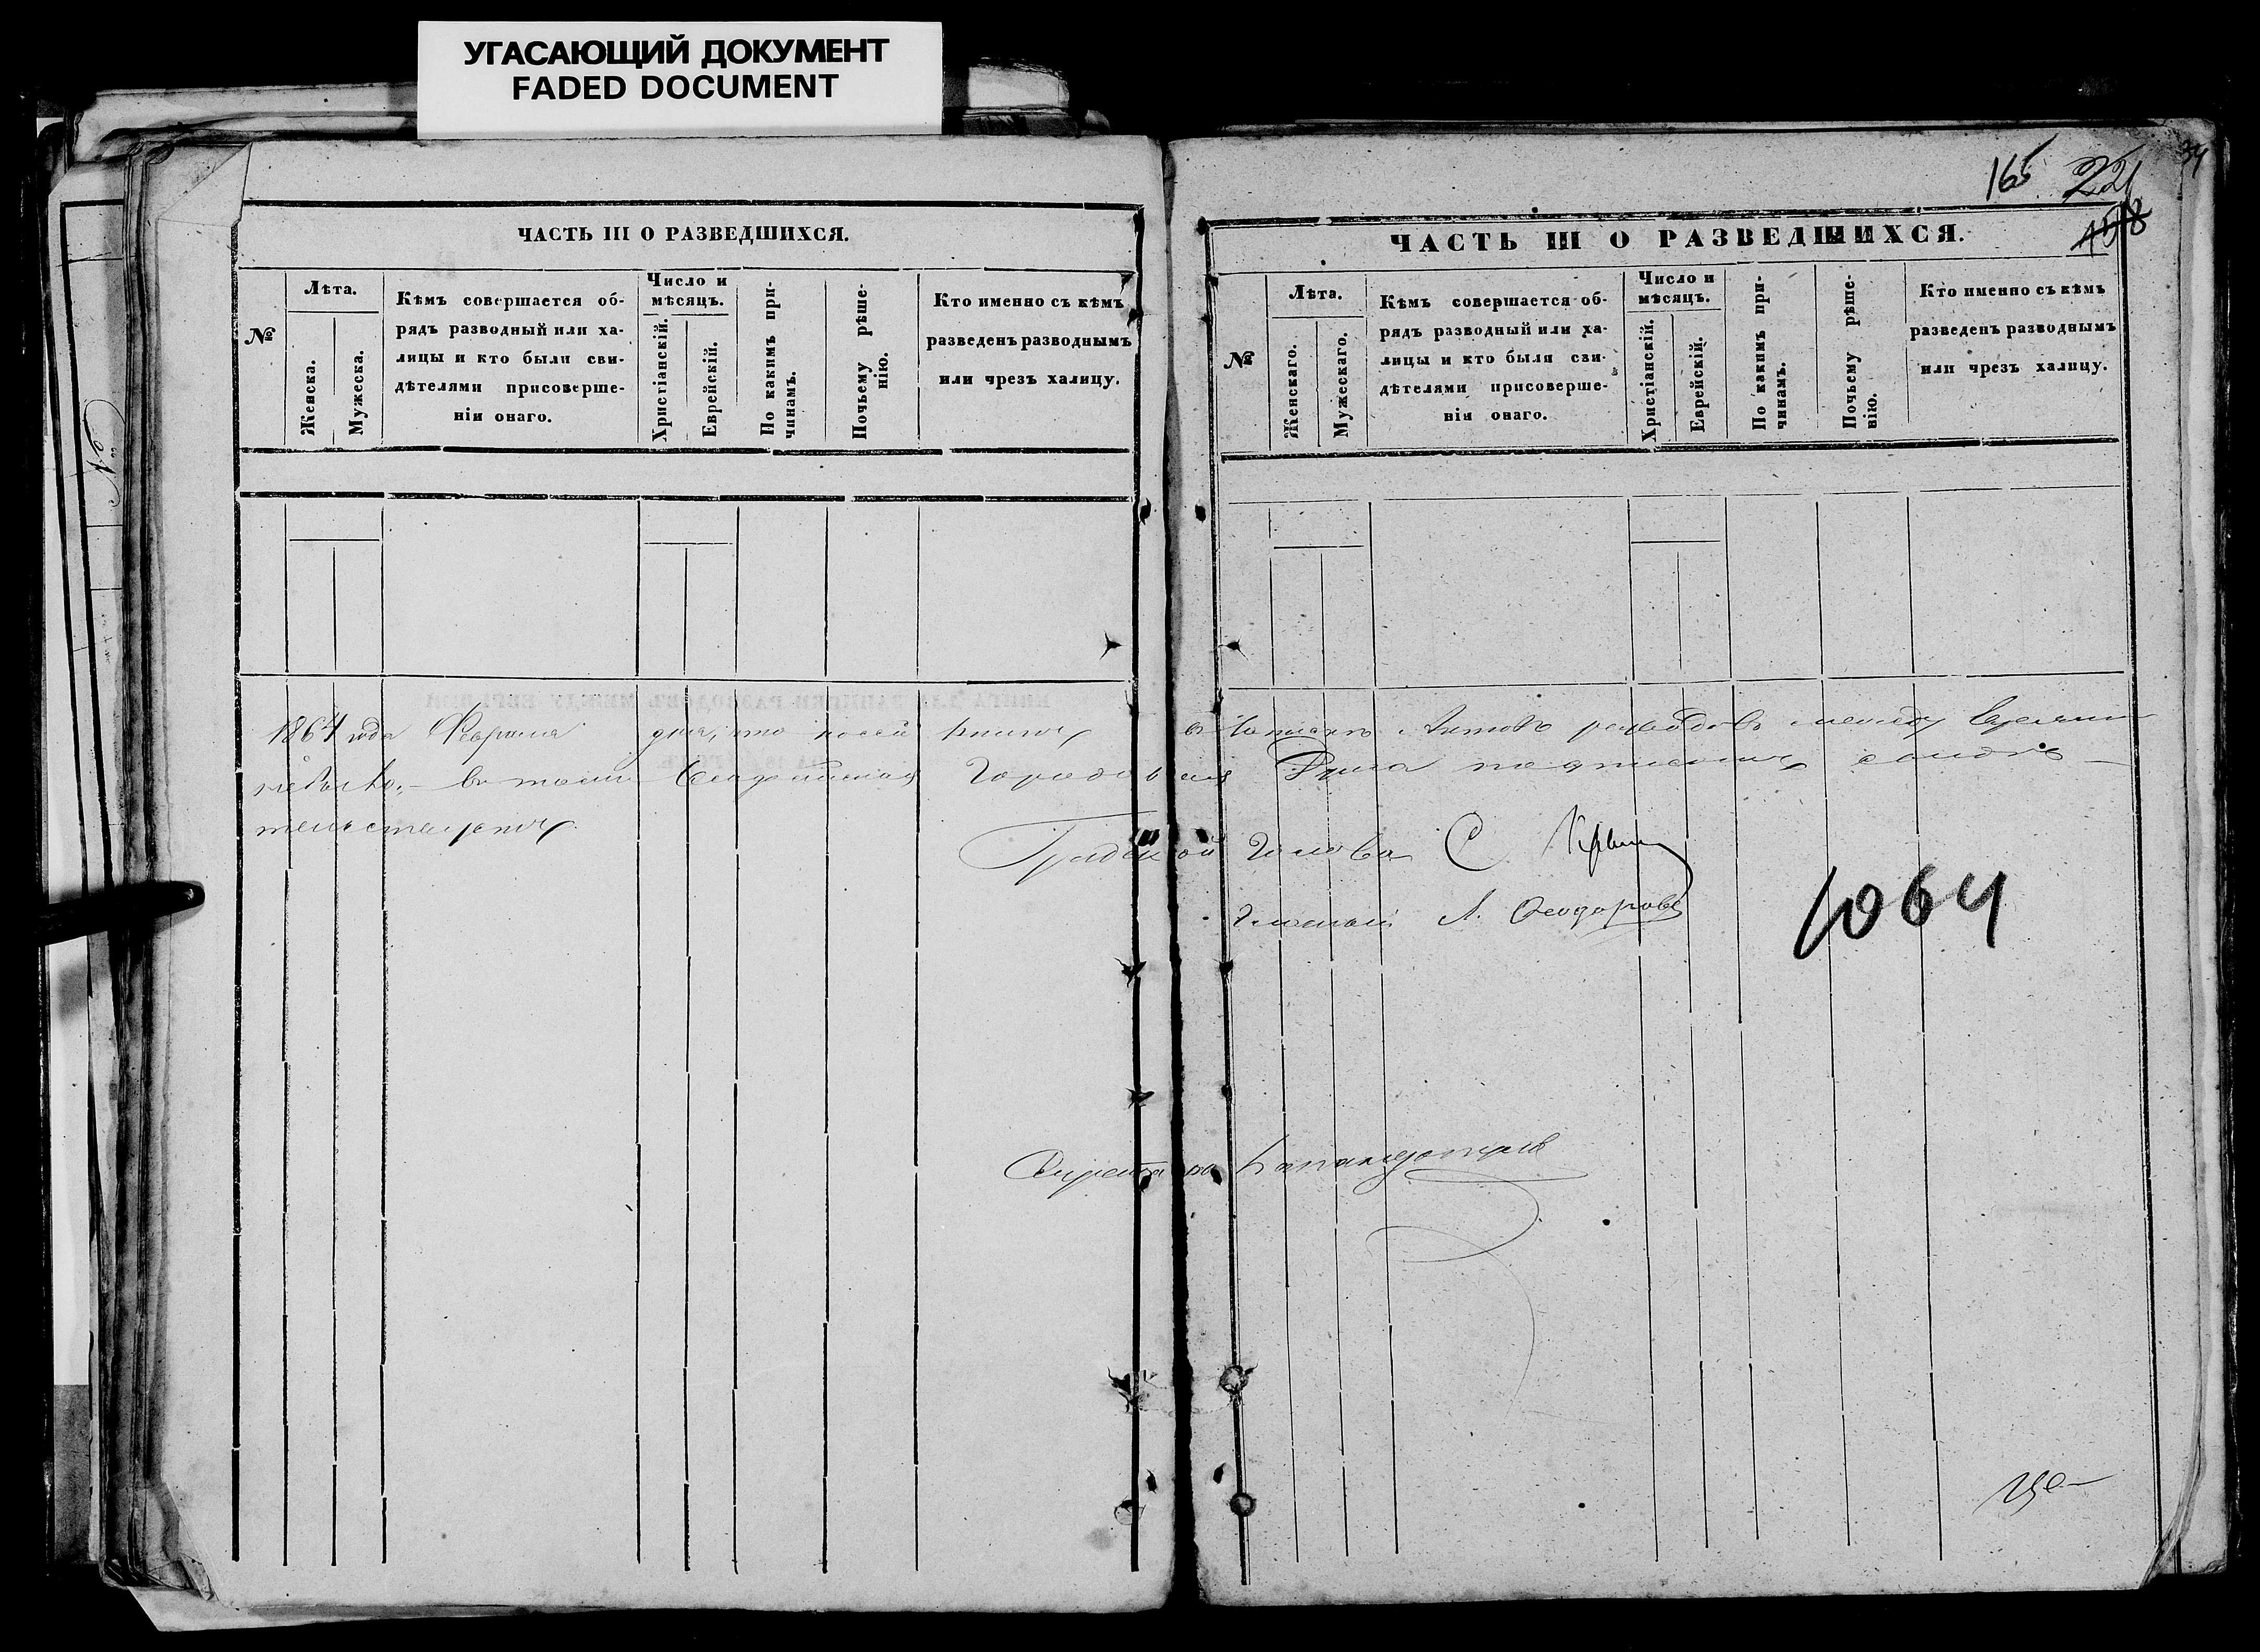 УГАСАЮЩИЙ ДОКУМЕНТ
FADED DOCUMENT
ЧАСТЬ III О РАЗВЕДШИХСЯ.
№
Лѣта.
Женска.
Мужеска.
Кѣмъ совершается об-
рядъ разводный или ха-
лицы и кто были сви-
дѣтелями присоверше-
ніи онаго.
Число и
мѣсяцъ.
Христіанскій.
Еврейскій.
По какимъ при-
чинамъ.
Почьему рѣше-
нію.
Кто именно съ кѣмъ
разведенъ разводнымъ
или чрезъ халицу.
165 221 34
ЧАСТЬ III О РАЗВЕДШИХСЯ.
№
Лѣта.
Женскаго.
Мужескаго.
Кѣмъ совершается об-
рядъ разводный или ха-
лицы и кто были сви-
дѣтелями присоверше-
ніи онаго.
Число и
мѣсяцъ.
Христіанскій.
Еврейскій.
По какимъ при-
чинамъ.
Почьему рѣше-
нію.
Кто именно съ кѣмъ
разведенъ разводнымъ
или чрезъ халицу.
1864 года Февраля дня, что по сей книгѣ Актовъ разводовъ между Евреями
не было, въ томъ Феодосійская Городовая Дума подписомъ
Градской Голова С.
Гласный А. Феодоровъ
Секретарь
1064